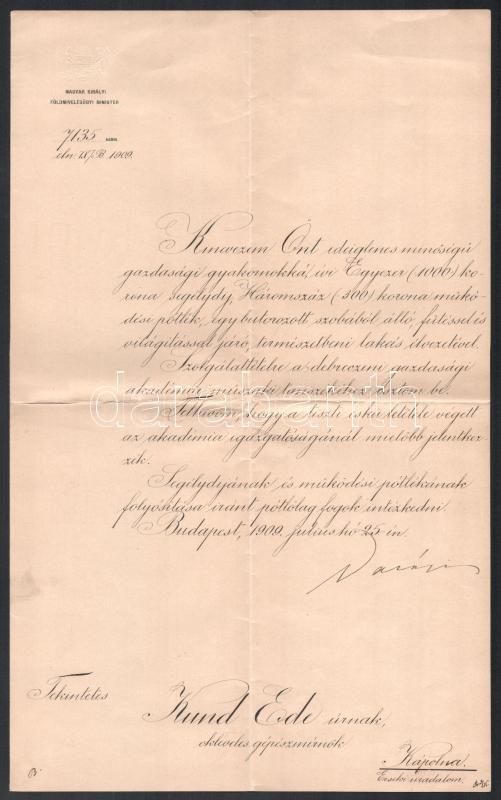 MAGYAR KIRÁLYI
FÖLDMIVELÉSÜGYI MINISTER
7135 szám.
eln. IX/B. 1909.
Kinevezem Önt ideiglenes minőségü
gazdasági gyakornokká, évi Egyezer (1000) ko-
rona segélydíj, Háromszáz (300) korona mükö-
dési pótlék, egy butorozott szobából álló, fütéssel és
világitással járó, természetbeni lakás élvezetével.
Szolgálattételre a debreczeni gazdasági
akadémia műszaki tanszékéhez osztom be.
Felhivom, hogy a tiszti eskü letétele végett
az akadémia igazgatóságánál mielőbb jelentkez-
zék.
Segélydijának és müködési pótlékának
folyósitása iránt pótlólag fogok intézkedni.
Budapest, 1909. julius hó 25-én.
darabanth
Tekintetes
Kund Ede úrnak,
okleveles gépészmérnök
Kápolna.
Érseki uradalom.